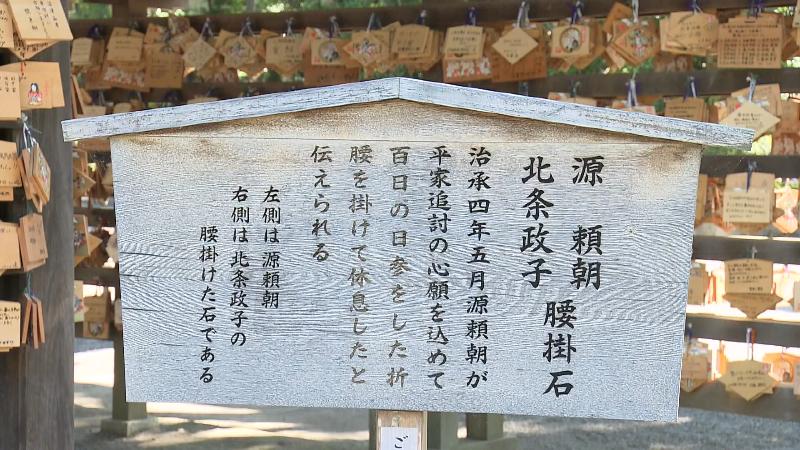 源 頼朝
北条政子
腰掛石
治承四年五月源頼朝が
平家追討の心願を込めて
百日の日参をした折
腰を掛けて休息したと
伝えられる
左側は源頼朝
右側は北条政子の
腰掛けた石である
ご